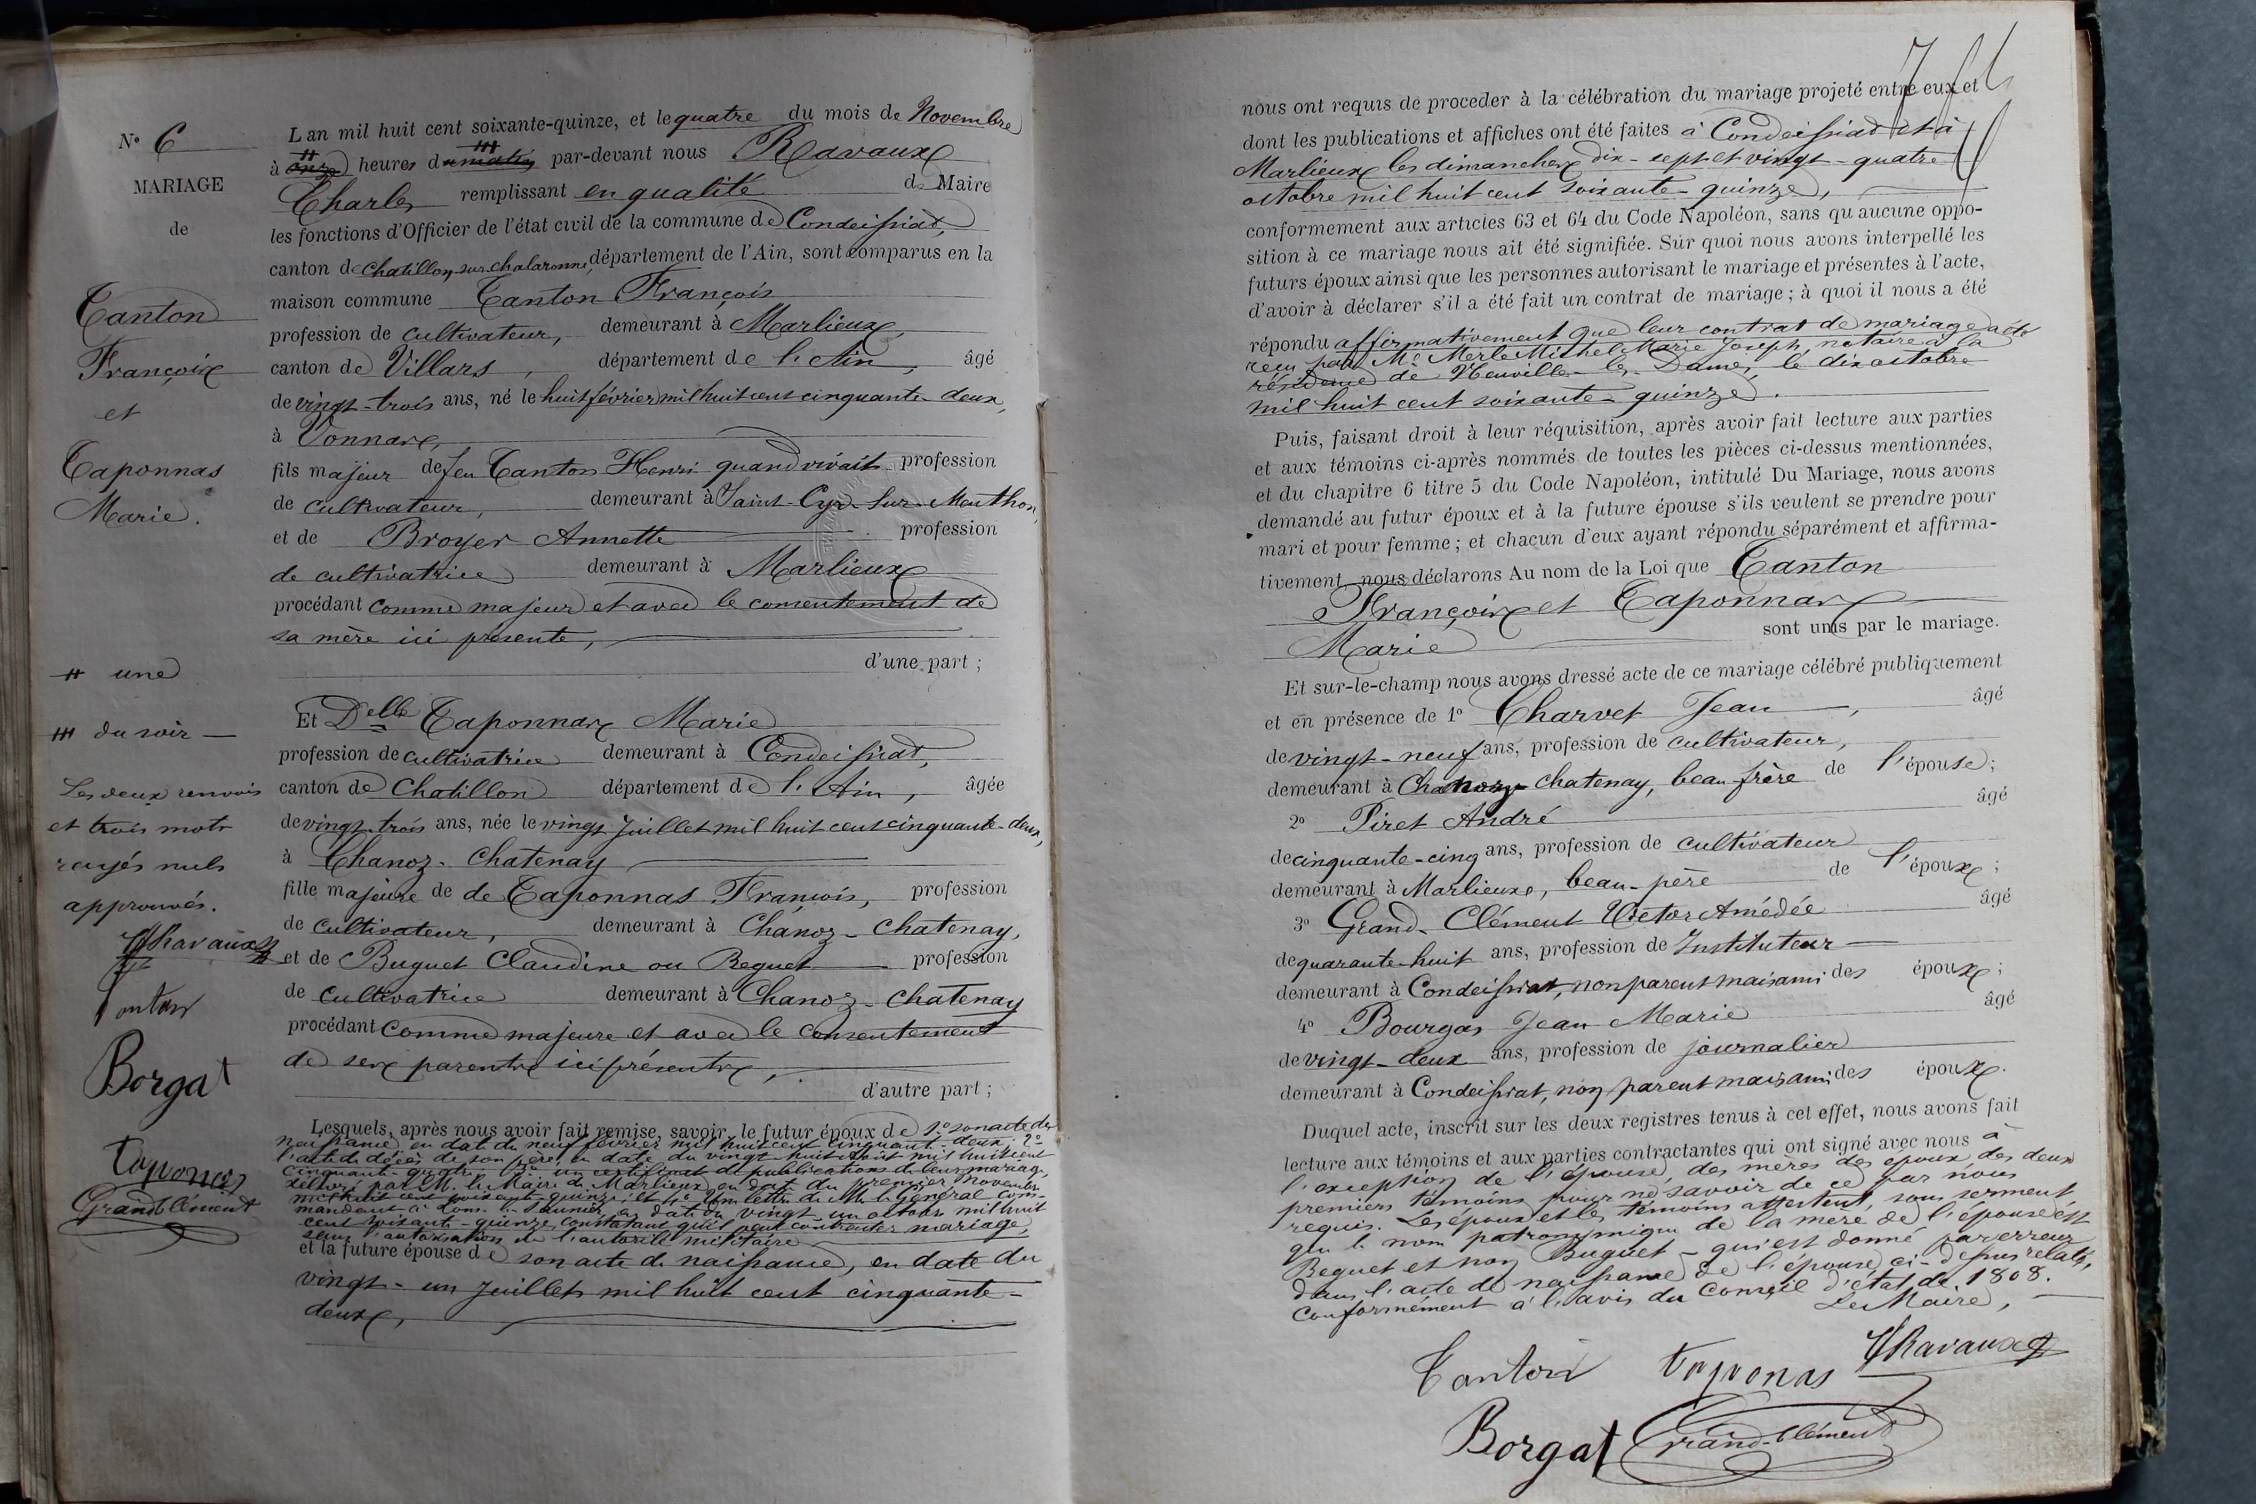 N° 6
MARIAGE
de
Tanton
François
et
Taponnas
Marie.
# une
## du soir
Les deux renvois
et trois mots
rayés nuls
approuvés.
Ravaux
Tanton
Borgat
taponas
Grand-Clément
L an mil huit cent soixante-quinze, et le quatre du mois de Novembre
à onze heures du matin par-devant nous Ravaux
Charles remplissant en qualité de Maire
les fonctions d'Officier de l'état civil de la commune de Condeissiat,
canton de Chatillon-sur-Chalaronne, département de l'Ain, sont comparus en la
maison commune Tanton François
profession de cultivateur, demeurant à Marlieux,
canton de Villars, département de l'Ain, âgé
de vingt-trois ans, né le huit février mil huit cent cinquante-deux,
à Vonnas,
fils majeur de feu Tanton Henri quand vivait profession
de cultivateur, demeurant à Saint-Cyr-sur-Menthon,
et de Broyer Annette profession
de cultivatrice demeurant à Marlieux
procédant comme majeur et avec le consentement de
sa mère ici présente,
d'une part ;
Et Delle Taponnas Marie
profession de cultivatrice demeurant à Condeissiat,
canton de Chatillon département de l'Ain, âgée
de vingt-trois ans, née le vingt Juillet mil huit cent cinquante-deux,
à Chanoz-Chatenay
fille majeure de de Taponnas François, profession
de cultivateur, demeurant à Chanoz-Chatenay,
et de Buguet Claudine ou Beguet profession
de cultivatrice demeurant à Chanoz-Chatenay
procédant comme majeure et avec le consentement
de ses parents ici présents,
d'autre part ;
Lesquels, après nous avoir fait remise, savoir, le futur époux de 1° son acte de
naissance, en date du neuf février mil huit cent cinquante-deux; 2°
l'acte de décès de son père, en date du vingt-huit mil huit cent
cinquante-quatre; 3° un certificat de publications de leur mariage
délivré par M. le Maire de Marlieux, en date du premier Novembre
mil huit cent soixante-quinze; et 4° Une lettre de M. le général com-
mandant à Lons-le-Saunier, en date du vingt un octobre mil huit
cent soixante-quinze, constatant qu'il peut contracter mariage,
sans l'autorisation de l'autorité militaire
et la future épouse de son acte de naissance, en date du
vingt-un Juillet mil huit cent cinquante-
deux,
nous ont requis de proceder à la célébration du mariage projeté entre eux et
dont les publications et affiches ont été faites à Condeissiat et à
Marlieux les dimanches dix-sept et vingt-quatre
octobre mil huit cent soixante-quinze,
conformement aux articles 63 et 64 du Code Napoléon, sans qu aucune oppo-
sition à ce mariage nous ait été signifiée. Sur quoi nous avons interpellé les
futurs époux ainsi que les personnes autorisant le mariage et présentes à l'acte,
d'avoir à déclarer s'il a été fait un contrat de mariage ; à quoi il nous a été
répondu affirmativement que leur contrat de mariage a été
reçu par Me Merle Michel Marie Joseph, notaire à la
résidence de Neuville-les-Dames, le dix octobre
mil huit cent soixante-quinze.
Puis, faisant droit à leur réquisition, après avoir fait lecture aux parties
et aux témoins ci-après nommés de toutes les pièces ci-dessus mentionnées,
et du chapitre 6 titre 5 du Code Napoléon, intitulé Du Mariage, nous avons
demandé au futur époux et à la future épouse s'ils veulent se prendre pour
mari et pour femme ; et chacun d'eux ayant répondu séparément et affirma-
tivement, nous déclarons Au nom de la Loi que Tanton
François et Taponnas
Marie sont unis par le mariage.
Et sur-le-champ nous avons dressé acte de ce mariage célébré publiquement
et en présence de 1° Charvet Jean, âgé
de vingt-neuf ans, profession de cultivateur,
demeurant à Chanoz-Chatenay, beau frère de l'épouse;
2° Piret André âgé
de cinquante-cinq ans, profession de cultivateur
demeurant à Marlieux, beau-père de l'époux ;
3° Grand-Clément Victor Amédée âgé
de quarante-huit ans, profession de Instituteur
demeurant à Condeissiat, non parent mais ami des époux ;
4° Bourgas Jean Marie âgé
de vingt-deux ans, profession de journalier
demeurant à Condeissiat, non parent mais ami des époux.
Duquel acte, inscrit sur les deux registres tenus à cet effet, nous avons fait
lecture aux témoins et aux parties contractantes qui ont signé avec nous à
l'exception de l'épouse, des mères des époux des deux
premiers témoins pour ne savoir de ce par nous
requis. Les époux et les témoins attestent, sous serment
que le nom patronymique de la mère de l'épouse est
Beguet et non Buguet – qui est donné par erreur
dans l'acte de naissance de l'épouse, ci-dessus relaté,
conformément à l'avis du Conseil d'état de 1808.
Le Maire,
Tanton taponas Ravaux
Borgat Grand-Clément